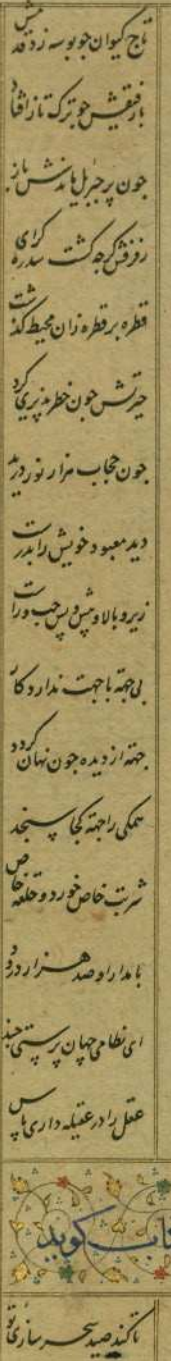 تاج کیوان چو بوسه زد قدمش
با رفیقش چو ترکتاز افتاد
چون پر جبرئیل ماندش باز
رفرفش گرچه گشت سدره گرای
قطره بر قطره زان محیط گذشت
حیرتش چون خطر پذیری کرد
چون حجاب هزار نور درید
دید معبود خویش را بدرست
زیر و بالا و پیش و پس چپ و راست
بی جهة با جهت ندارد کار
جهة از دیده چون نهان گردد
همگی را جهة کجا سنجد
شربت خاص خورد و خلعت خاص
با مدارا و صد هزار درود
ای نظامی جهان پرستی چند
عقل را در عقیله داری پاس
کتاب گوید
تا کند صید سحر سازی تو